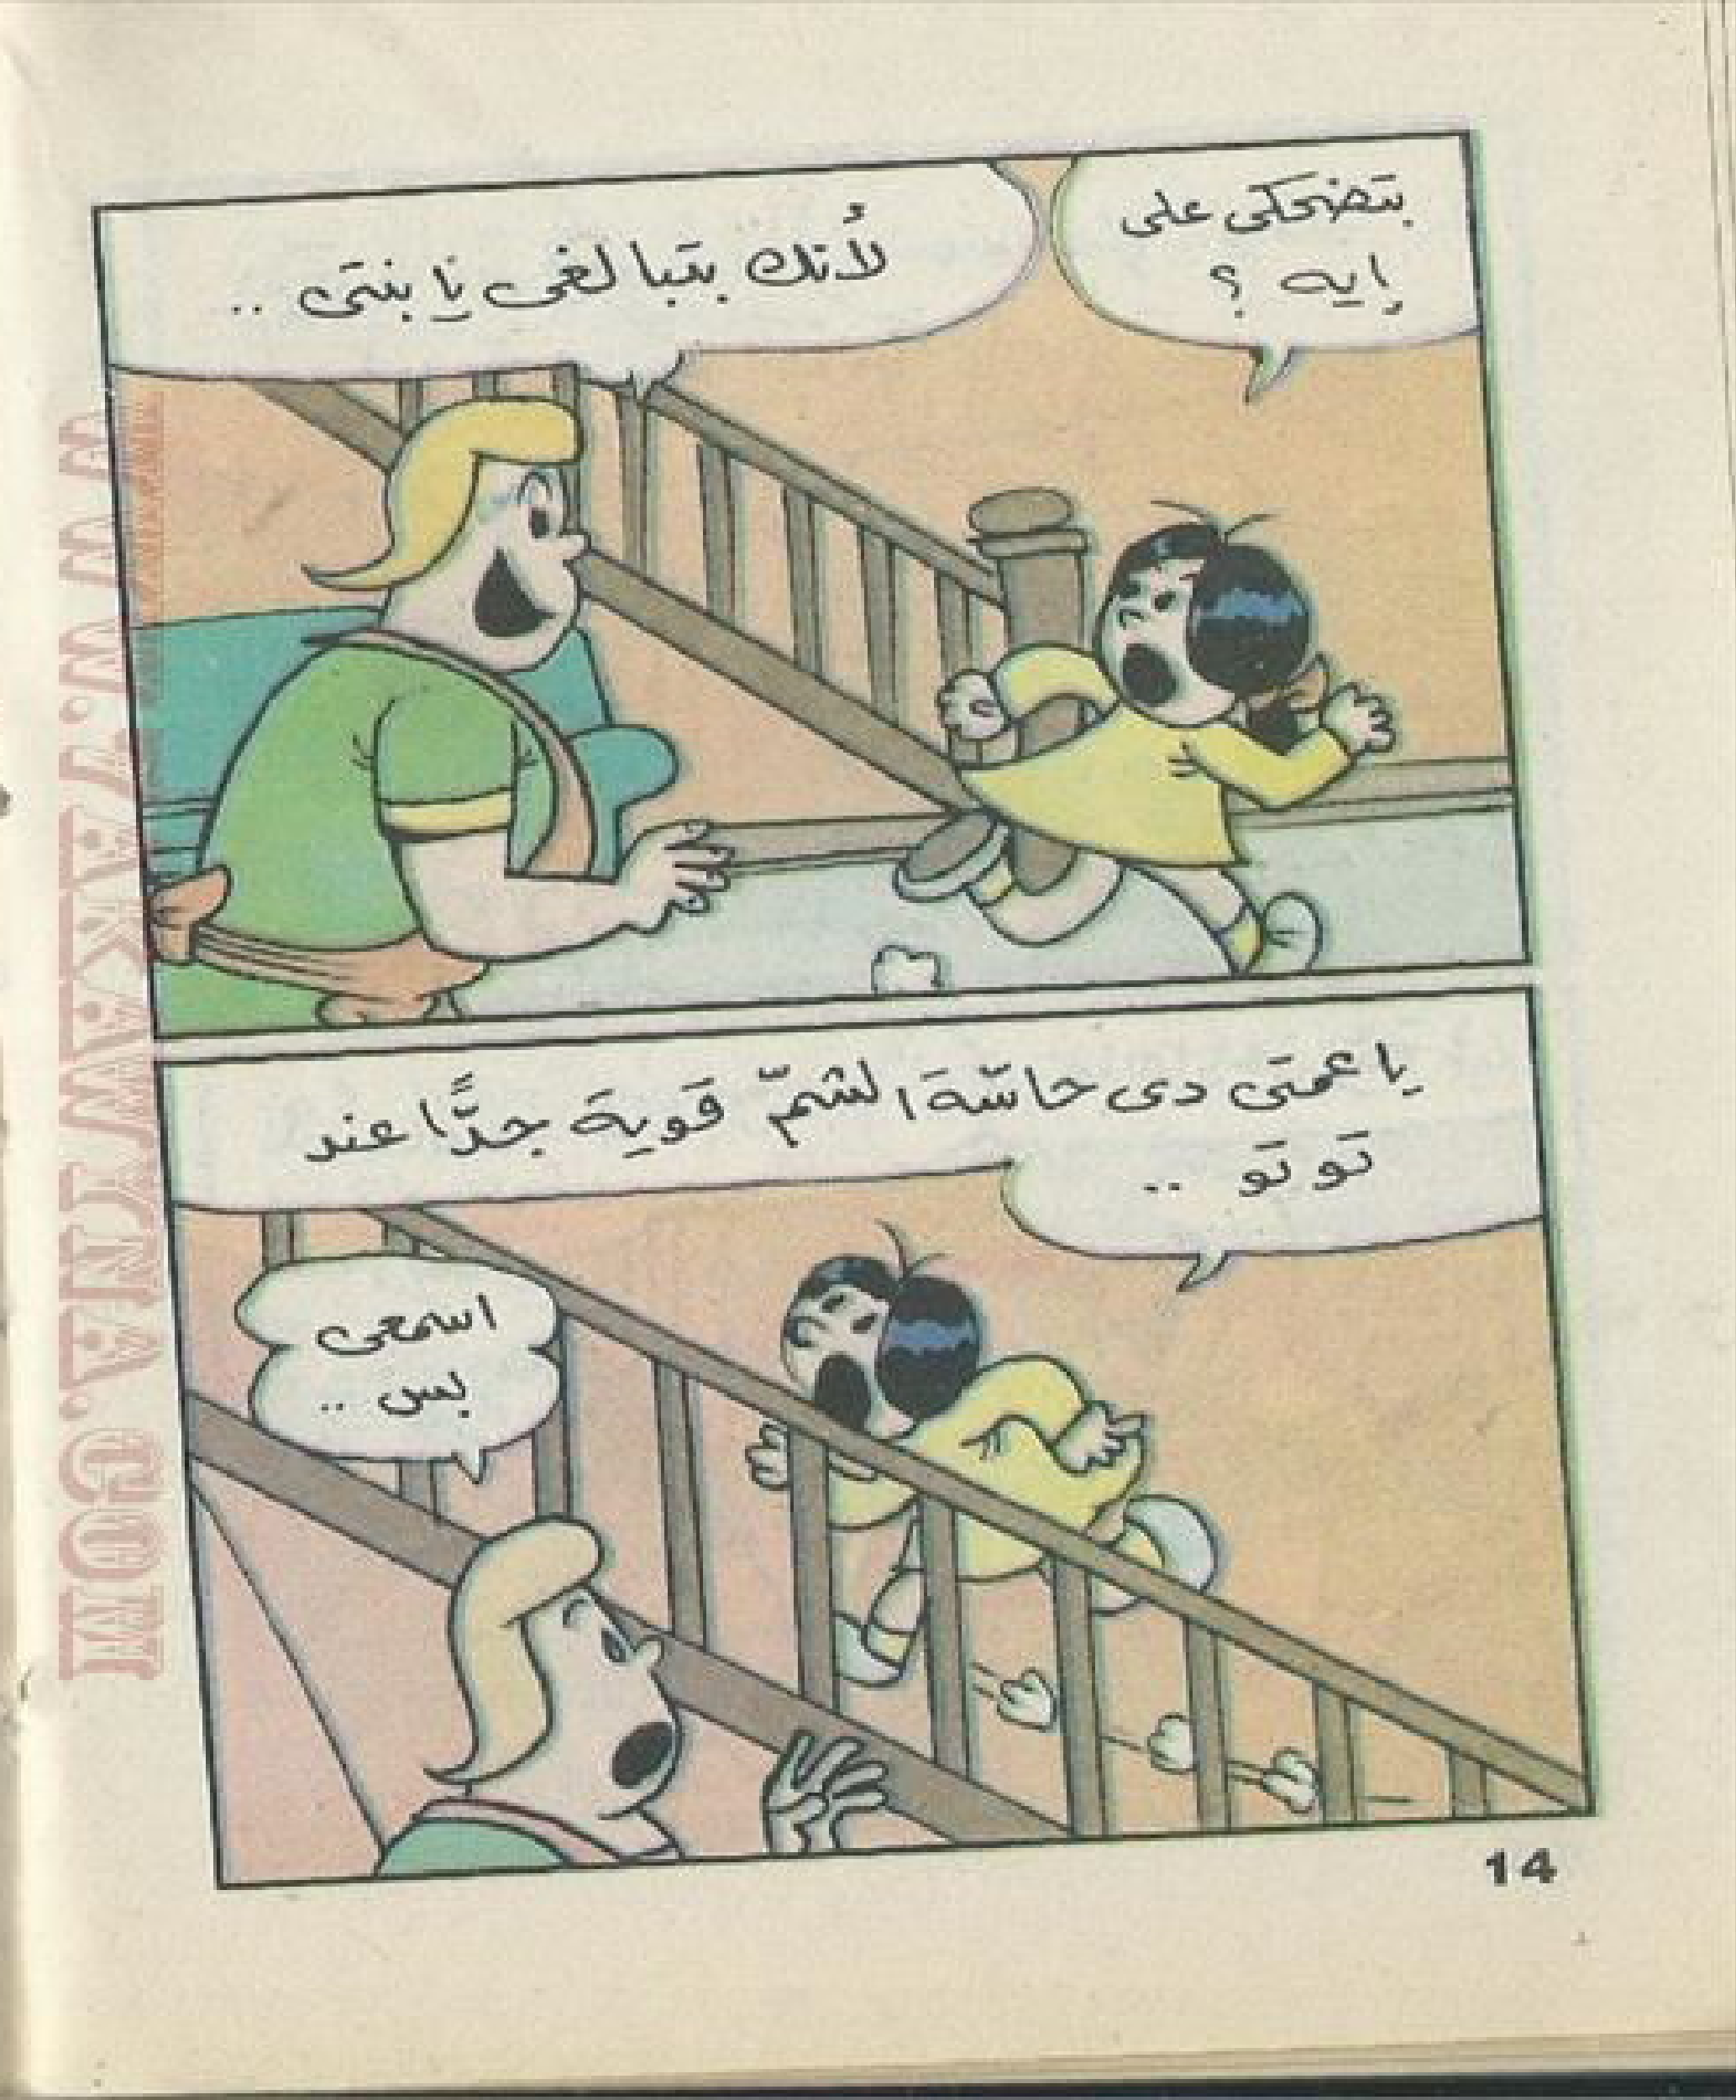 بتضحكى على
إيه ؟
لأنك بتبالغى يا بنتى ..
يا عمتى دى حاسّة الشمّ قوية جدًّا عند
توتو ..
اسمعى
بس ..
14
WWW.ARAKAWTNA.COM